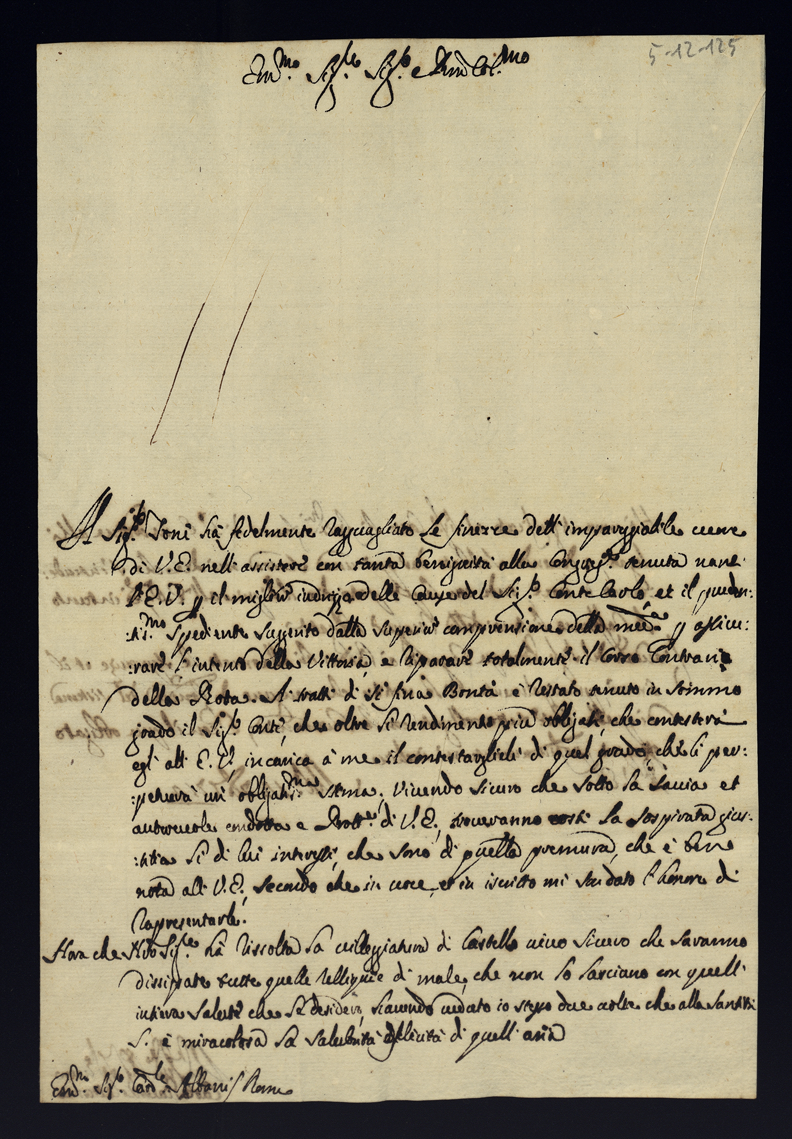 5-12-125
Em.mo Sig.re Sig.re e Pron Col.mo
Il Sig.r Toni hà fedelmente ragguagliato le finezze dell'impareggiabile cuore
di V.E. nell'assistere con tanta benignità alla Congreg.ne tenuta nanti
l'E.V. p il miglior indrizzo delle Cause del Sig.r Conte Carlo, et il pruden:
:tis.mo spediente suggerito dalla superior comprensione della med.a p assicu:
:rare l'intento della Vittoria, e riparare totalmente il Contrario
della Rota. A tratti di sì fina Bontà è restato tenuto in sommo
grado il Sig.r Conte, che oltre li rendimento più obligati, che contesterà
egli all'E.V, incarica à me il contestarglieli di quel grado, che li per:
:petuerà un obligatis.ma stima, Vivendo sicuro che sotto la saccia et
autorevole condotta e Prott.ne di V.E, troveranno costì la sospirata gius:
:titia li di lui interessi, che sono di quella premura, che è ben
nota all'V.E, secondo che in voce, et in iscritto mi son dato l'honore di
rapresentarle.
Hora che Nro Sig.re hà risolta la villeggiatura di Castello vivo sicuro che saranno
dissipate tutte quelle relliquie di male, che non lo lasciano con quell'
intiera salute che si desidera, havendo veduto io stesso due volte che alla Santità
S. è miracolosa la salubrità felicità di quell'aria
Em.mo Sig.r Card.le Albani / Roma